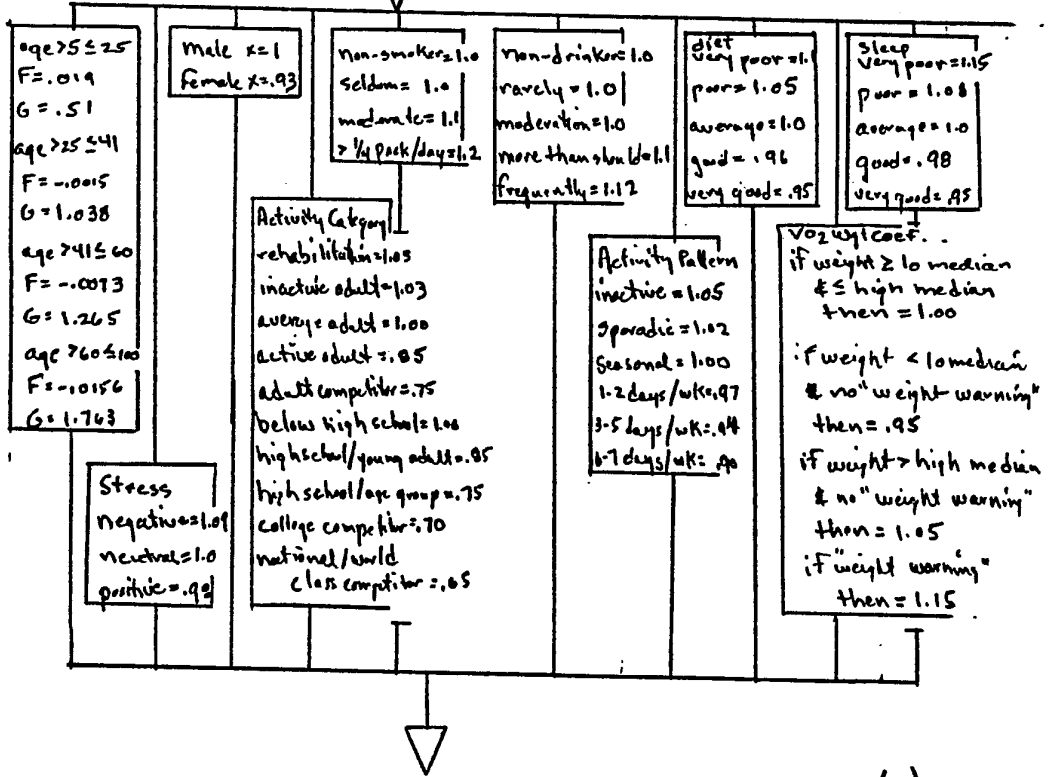 age >5 ≤ 25
F= .019
G = .51
age >25 ≤41
F= -.0015
G=1.038
age >41≤ 60
F= -.0073
G= 1.265
age >60≤100
F= -.0156
G= 1.763
Male x=1
Female x=.93
non-smoker=1.0
seldom= 1.0
moderate= 1.1
> 1/4 pack/day=1.2
non-drinker=1.0
rarely = 1.0
moderation=1.0
more than should=1.1
frequently=1.12
diet
very poor=1.1
poor= 1.05
average=1.0
good = .96
very good=.95
Sleep
very poor=1.15
poor = 1.08
average=1.0
good= .98
very good=.95
Stress
negative=1.09
neutral=1.0
positive=
Activity Category
rehabilitation=1.05
inactive adult=1.03
average adult=1.00
active adult=.85
adult competitor=.75
below high school=1.00
high school/young adult=.85
high school/age group=.75
college competitor=.70
national/world
class competitor=.65
Activity Pattern
inactive=1.05
Sporadic=1.02
Seasonal=1.00
1-2 days/wk=.97
3-5 days/wk=.94
6-7 days/wk=.90
VO2 wgt coef..
if weight ≥ lo median
& ≤ high median
then = 1.00
if weight < lo median
& no "weight warning"
then= .95
if weight > high median
& no "weight warning"
then= 1.05
if "weight warning"
then= 1.15